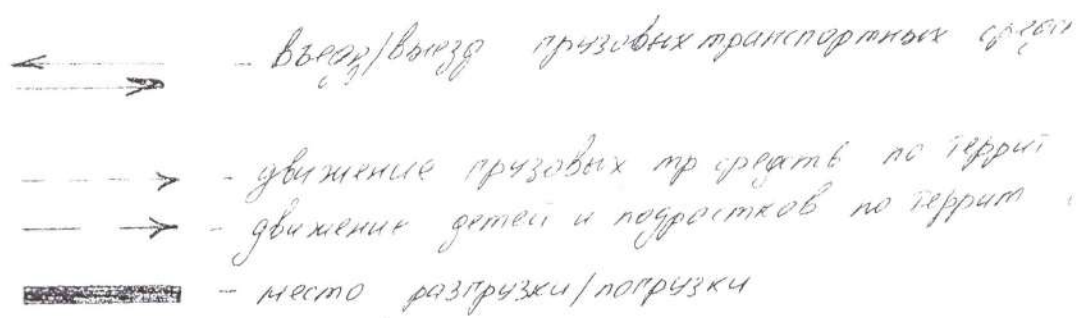 - въезд/выезд грузовых транспортных средст
- движение грузовых тр средств по террит
- движение детей и подростков по террит
- место разгрузки/погрузки